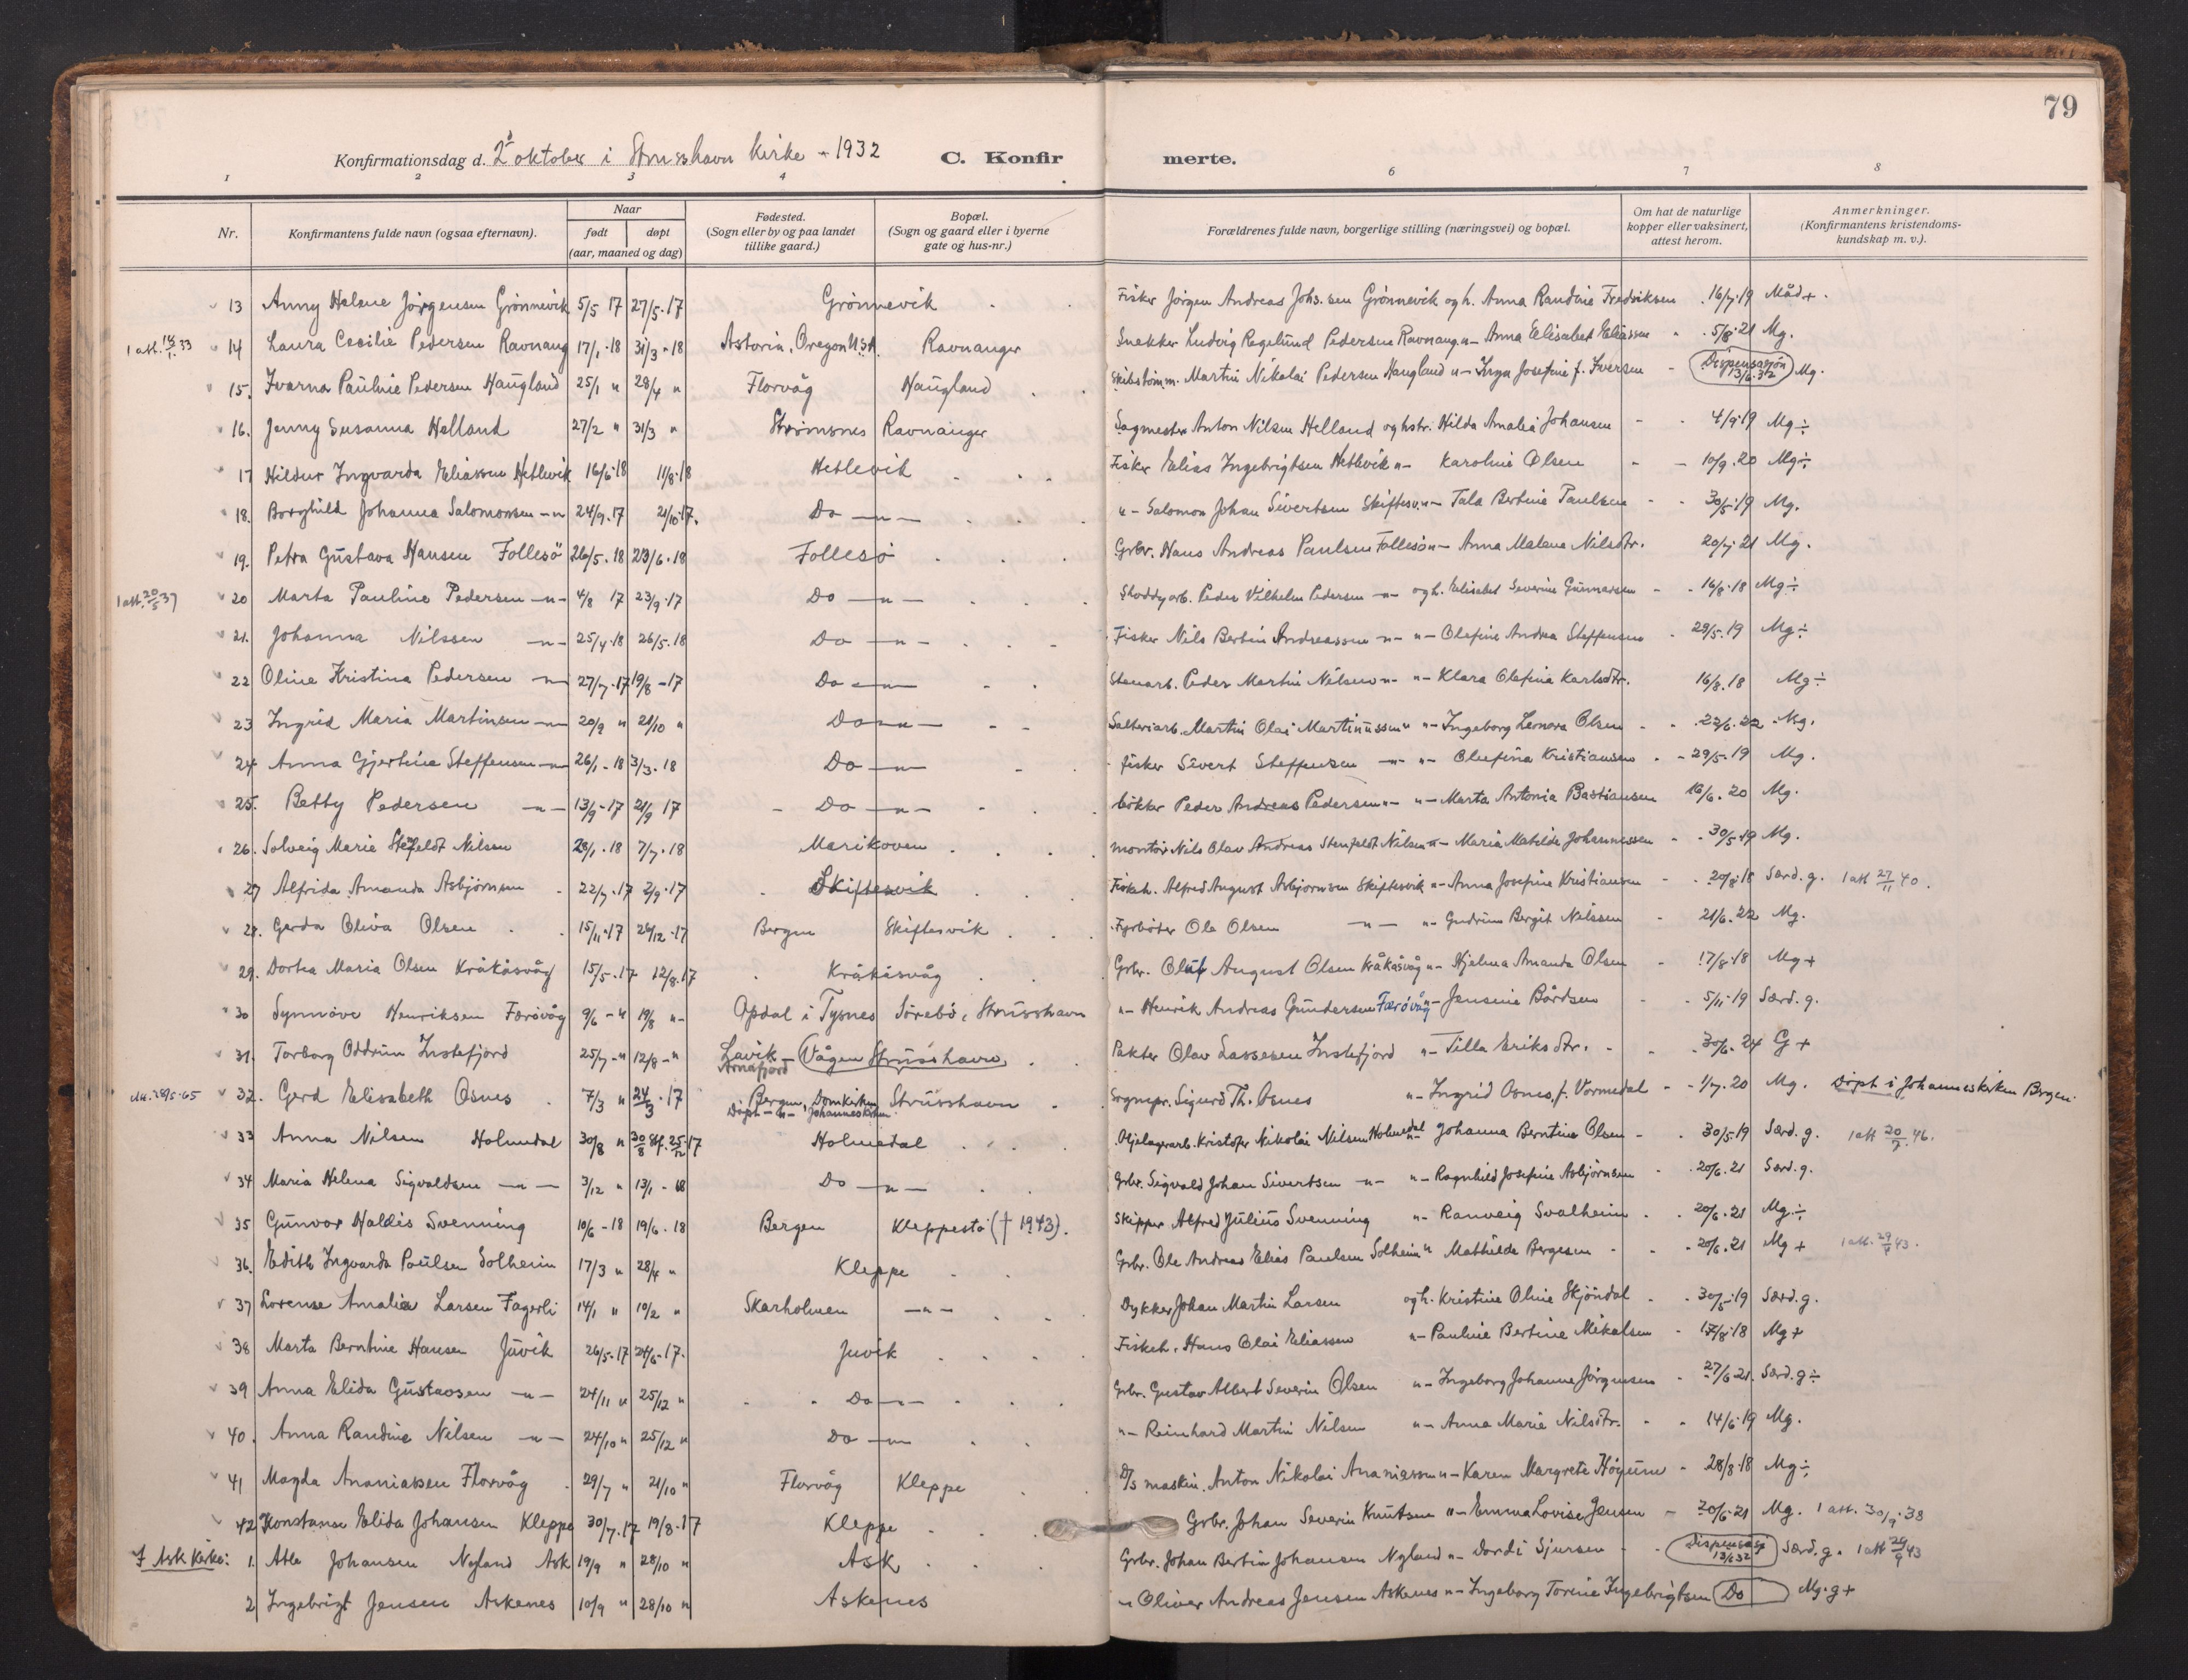 79
Konfirmationsdag d. 2 oktober i Strusshavn kirke - 1932 C. Konfir merte.
1 2 3 4 6 7 8
Nr. Konfirmantens fulde navn (ogsaa efternavn). Naar født døpt (aar, maaned og dag) Fødested. (Sogn eller by og paa landet tillike gaard.) Bopæl. (Sogn og gaard eller i byerne gate og hus-nr.) Forældrenes fulde navn, borgerlige stilling (næringsvei) og bopæl. Om hat de naturlige kopper eller vaksinert, attest herom. Anmerkninger. (Konfirmantens kristendoms-kundskap m. v.).
13 Anny Helene Jørgensen Grønnevik 5/5 17 27/5.17 Grønnevik Fisker Jørgen Andreas Johs.sen Grønnevik og h. Anna Randine Fredriksen 16/7.19 Måd+.
1 att. 33 14 Laura Cecilie Pedersen Ravnang 17/1.18 31/3-18 Astoria, Oregon U.S.A. Ravnanger Snekker Ludvig Regelund Pedersen Ravnang. "- Anna Elisabet Eliassen 5/8.21 Mg.
15. Ivarna Pauline Pedersen Haugland 25/1 " 28/4 " Florvåg Haugland Skibstømm. Martin Nikolai Pedersen Haugland "- Inga Josefine f. Iversen - Dispensasjon 13/6.32 Mg.
16. Jenny Susanna Helland 27/2 " 31/3 " Strømsnes Ravnanger Sagmester Anton Nilsen Helland og hstr. Hilda Amalia Johansen - 4/9.19 Mg÷
17 Hildur Ingvarda Eliassen Hetlevik 16/6.18 11/8.18 Hetlevik Fisker Elias Ingebrigtsen Hetlevik "- Karoline Olsen - 10/9.20 Mg÷
18. Borghild Johanna Salomonsen -"- 24/9.17 21/10.17. Do -"- "- Salomon Johan Sivertsen Skiftesv. "- Tala Bertine Paulsen - 30/5.19 Mg.
19. Petra Gustava Hansen Follesø 26/5.18 23/6.18 Follesø Grbr. Hans Andreas Paulsen Follesø "- Anna Malena Nilsdtr. 20/7.21 Mg.
1 att. 20/5 37 20 Marta Pauline Pedersen -"- 4/8 17 23/9.17 Do -"- Shoddyarb. Peder Vilhelm Pedersen -"- og h. Elisabet Severine Gunnarsen - 16/8.18 Mg÷
21. Johanna Nilssen -"- 25/4.18 26/5.18 Do -"- Fisker Nils Bertin Andreassen -"- "- Olefine Andrea Steffensen - 29/5.19 Mg÷
22 Oline Kristina Pedersen -"- 27/7.17 19/8-17 Do -"- Stenarb. Peder Martin Nilsen "- "- Klara Olefine Karlsdtr. 16/8.18 Mg÷
23 Ingrid Maria Martinsen -"- 20/9 " 21/10 " Do -"- Martin Olai Martinussen " "- Ingeborg Leonora Olsen - 22/6.22 Mg.
24. Anna Gjertine Steffensen -"- 26/1-18 3/3.18 Do -"- fisker Sivert Steffensen -"- "- Olufina Kristiansen - 29/5.19 Mg.
25. Betty Pedersen -"- 13/9-17 21/9 17 Do -"- bøkker Peder Andreas Pedersen "- "- Marta Antonia Bastiansen 16/6.20 Mg.
26. Solveig Marie Stefeldt Nilsen 28/1.18 7/7.18 Marikoven montør Nils Olav Andreas Stenfeldt Nilsen "- Maria Matilde Johannessen - 30/5.19 Mg.
27 Alfrida Amanda Asbjørnsen 22/7.17 2/9.17 Skiftesvik Fiskeh. Alfred August Asbjørnsen Skiftesvik "- Anna Josefine Kristiansen - 20/8.18 Særd.g. 1 att 27/11 40.
28. Gerda Oliva Olsen 15/11.17 26/12.17 Bergen Skiftesvik Fyrbøter Ole Olsen -"- "- Gudrun Bergit Nilssen - 21/6.22 Mg.
29. Dortea Maria Olsen Kråkåsvåg 15/5.17 12/8.17 Kråkåsvåg Grbr. Oluf August Olsen Kråkåsvåg "- Hjelma Amanda Olsen - 17/8.18 Mg+
30 Synnøve Henriksen Færøvåg 9/6 -" 19/8 "- Opdal i Tysnes Sørebø, Strusshavn "- Henrik Andreas Gundersen Færøvåg "- Jensine Bårdsen - 5/11.19 Særd.g.
31. Torborg Oddrun Instefjord 25/7 -" 12/8 -" Lavik Arnafjord Vågen Strusshavn Pakter Olav Lassesen Instefjord "- Tilla Eriksdtr. - 30/6.24 G+
28/5.65 32. Gerd Elisabeth Osnes 7/3 " 24/3.17 Bergen, Domkirken Døpt -"- Johanneskirken Strusshavn Sognepr. Sigurd Th. Osnes "- Ingrid Osnes, f. Vormedal - 1/7.20 Mg. Døpt i Johanneskirken Bergen.
33 Anna Nilsen Holmedal 30/8 " 30/8 Stf. 25/12 17 Holmedal Oljelagerarb. Kristofer Nikolai Nilsen Holmedal "- Johanna Berntine Olsen - 30/5.19 Særd.g. 1 att 20/7.46.
34 Maria Helena Sigvaldsen -"- 3/12 " 13/1-18 Do -"- Grbr. Sigvald Johan Sivertsen -"- "- Ragnhild Josefine Asbjørnsen - 20/6.21 Særd.g.
35 Gunvor Haldis Svenning 10/6-18 19/6.18 Bergen Kleppestø († 1943). Skipper Alfred Julius Svenning "- Ranveig Svalheim - 20/6.21 Mg÷
36. Edith Ingvarda Paulsen Solheim 17/3 " 28/4 " Kleppe Grbr. Ole Andreas Elias Paulsen Solheim " Mathilde Bergesen - 20/6.21 Mg+ 1 att. 43.
37 Lorense Amalia Larsen Fagerli 14/1 " 10/2 " Skarholmen -"- Dykker Johan Martin Larsen og h. Kristine Oline Skjöndal - 30/5.19 Særd.g.
38 Marta Berntine Hansen Juvik 26/5.17 24/6.17. Juvik Fiskeh. Hans Olai Eliassen "- Pauline Bertine Mikalsen - 17/8.18 Mg+
39 Anna Elida Gustavsen -"- 24/11 " 25/12 " Do -"- Grbr. Gustav Albert Severin Olsen "- Ingeborg Johanne Jørgensen - 27/6.21. Særd.g÷
40. Anna Randine Nilsen -"- 24/10 " 25/12 " Do -"- "- Reinhard Martin Nilsen "- Anna Marie Nilsdtr. - 14/6.19 Mg.
41 Magda Ananiassen Florvåg 29/7 " 21/10 " Florvåg Kleppe D/s maskin. Anton Nikolai Ananiassen "- Karen Margrete - 28/8.18 Mg÷
42 Konstanse Elida Johansen Kleppe 30/7.17 19/8.17 Kleppe Grbr. Johan Severin Knutsen "- Emma Lovise Jensen - 20/6.21 Mg. 1 att. 30/9.38
I Ask Kirke: 1. Atle Johansen Nyland Ask 19/9 " 28/10 " Ask Grbr. Johan Bertin Johansen Nyland "- Dordi Sjursen - Dispensasj 13/6 32 Særd.g. 1 att 43
2 Ingebrigt Jensen Askenes 10/9 " 28/10 " Askenes "- Oliver Andreas Jensen Askenes "- Ingeborg Torine Ingebrigtsen Do Mg.g+